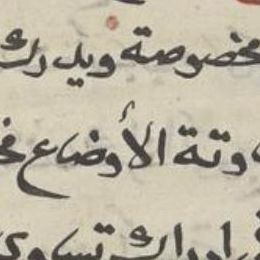 مخصوصة ويدرك
وتة الأوضاع
ادراك تساوي